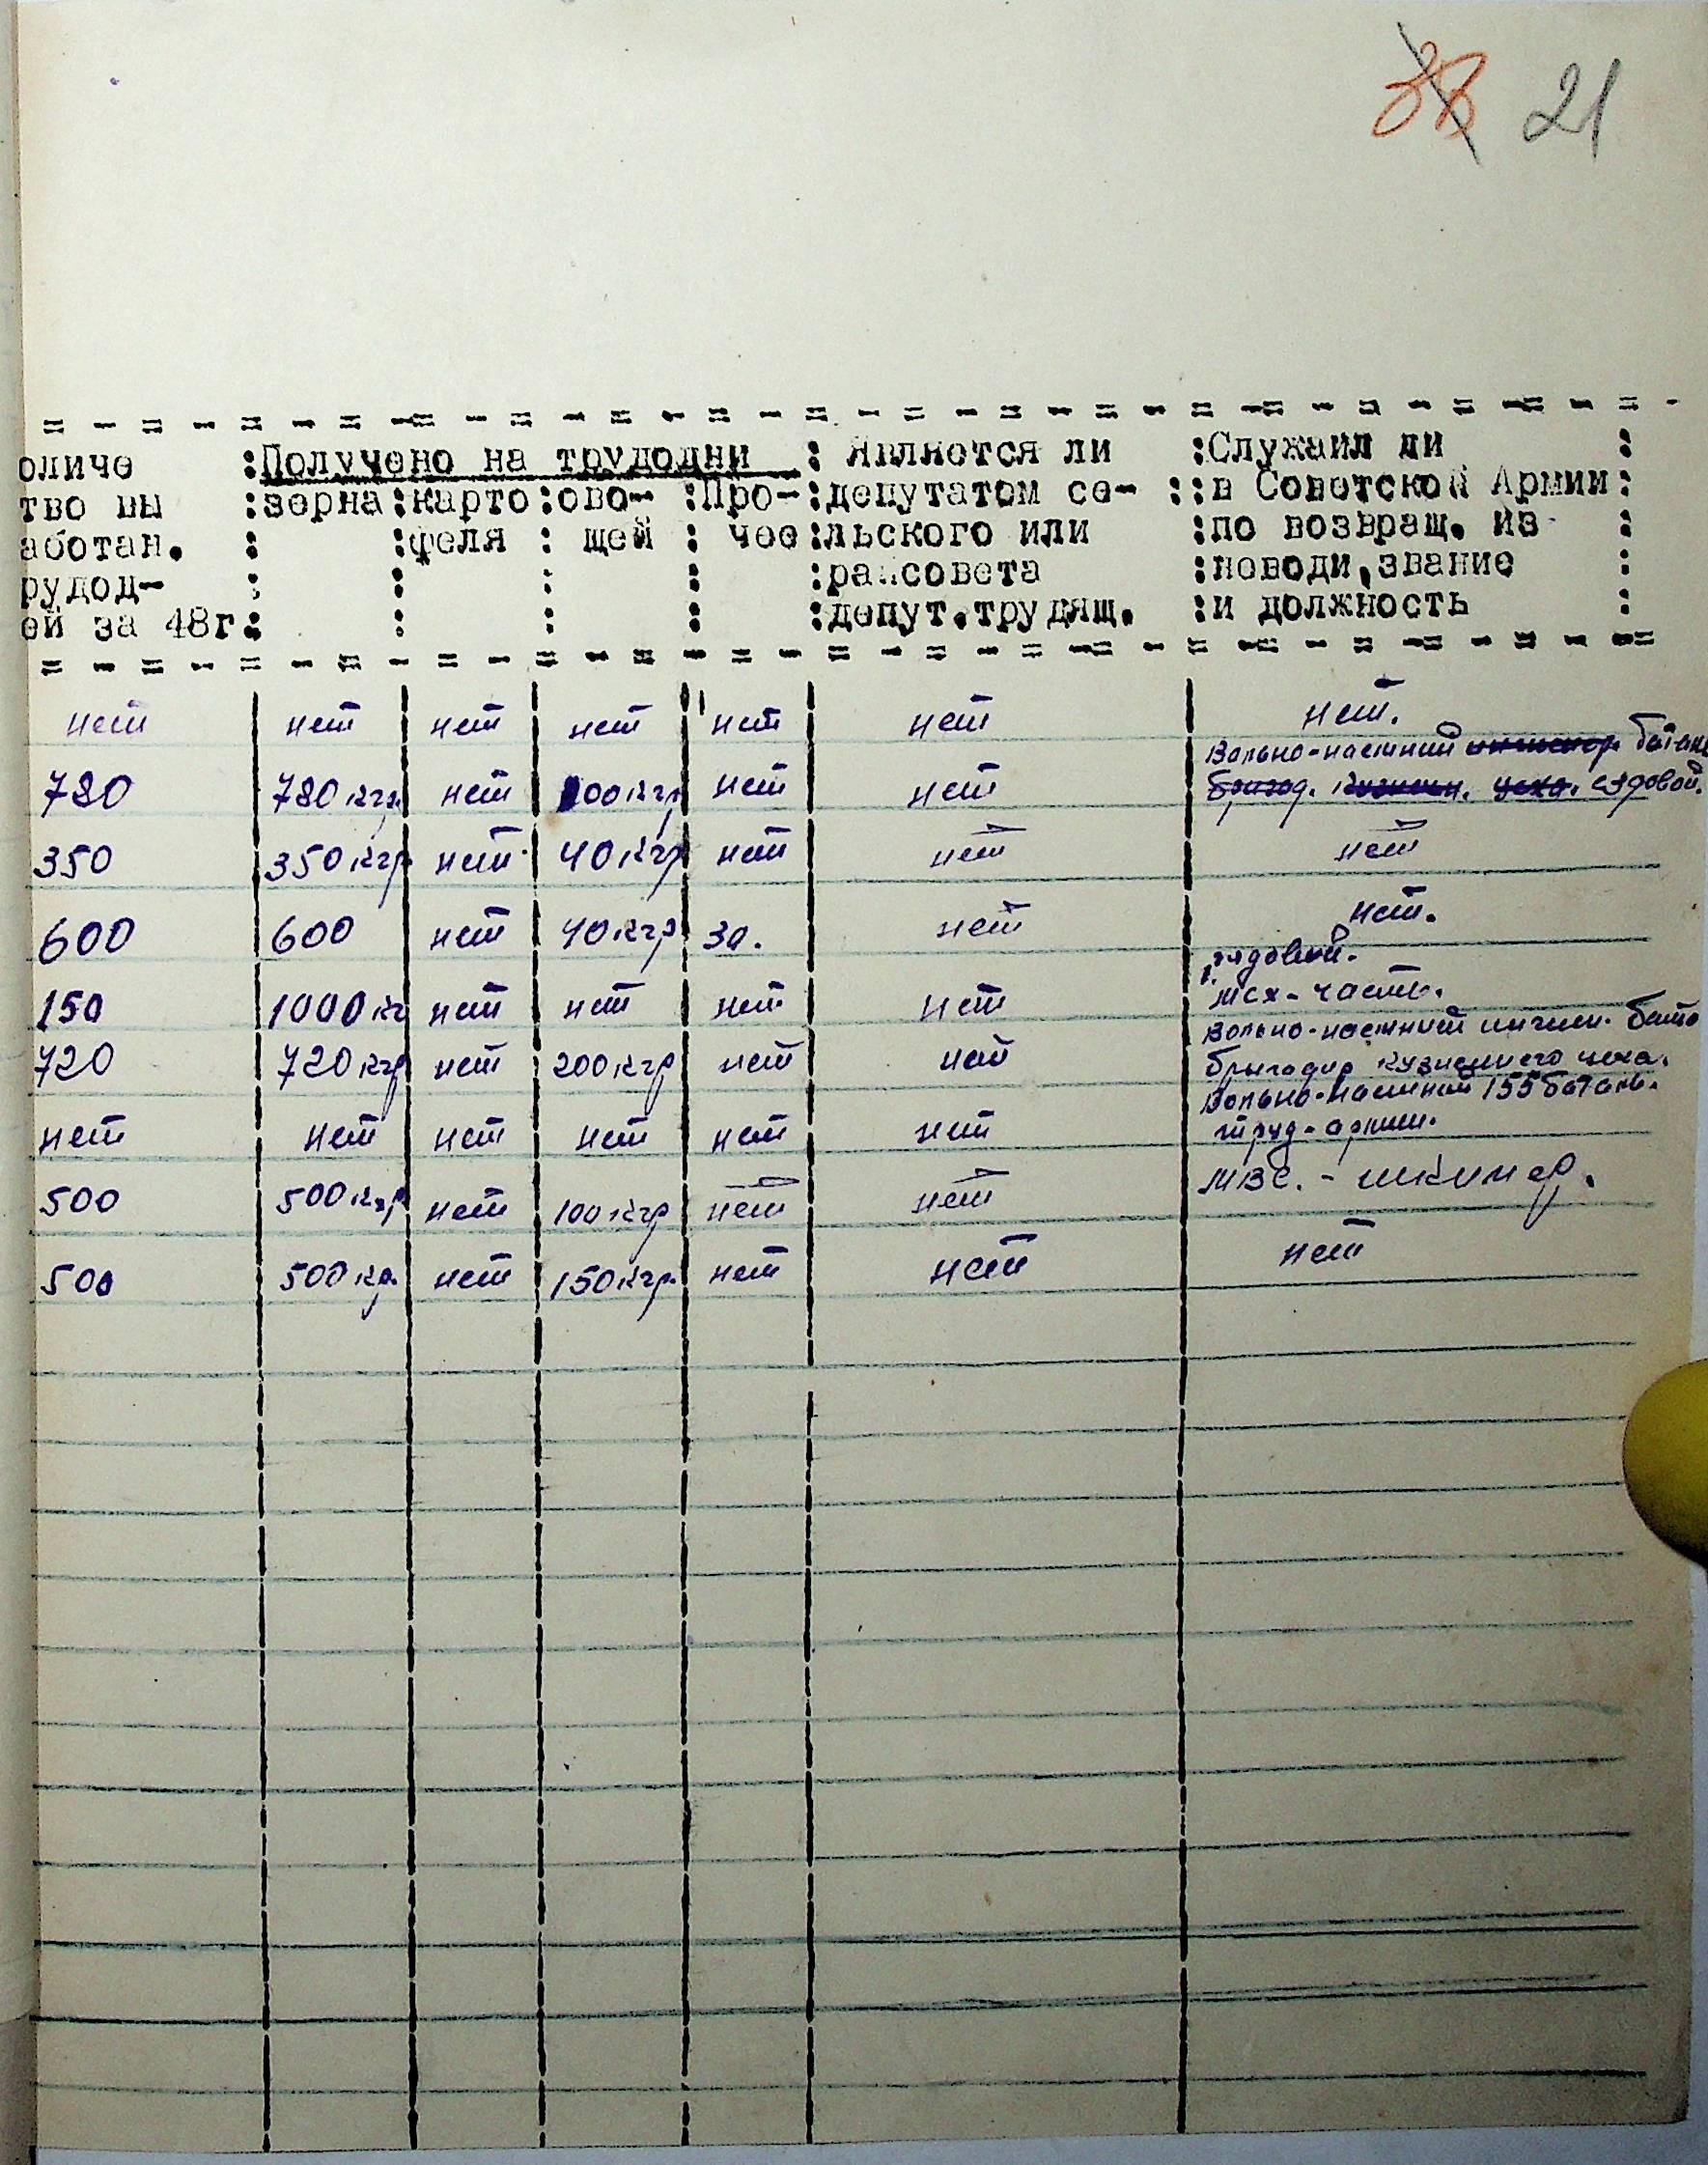 38 21
оличе :Получено на трудодни : Является ли :Служаил ли :
тво вы :зерна:карто:ово- :Про-:депутатом се- ::в Советской Армии:
аботан. : :феля : щей : чее:льского или :по возвращ. из :
рудод- : : : : :райсовета :новоди,звание :
ей за 48г: : : : :депут.трудящ. :и должность :
нет нет нет нет нет нет нет.
Вольно-наемний батань
780 780 кгр. нет 100 кгр нет нет ездовой.
350 350 кгр нет 40 кгр нет нет нет
600 600 нет 40 кгр за. нет нет.
рядовой.
150 1000 кг нет нет нет нет мех-часть.
Вольно-наемний инжен. бата
720 720 кгр нет 200 кгр нет нет бригадир кузнечного цеха.
Вольно-наемний 155 батань.
нет нет нет нет нет нет труд-армии.
500 500 кгр нет 100 кгр нет нет МВС. -
500 500 кр. нет 150 кгр. нет нет нет